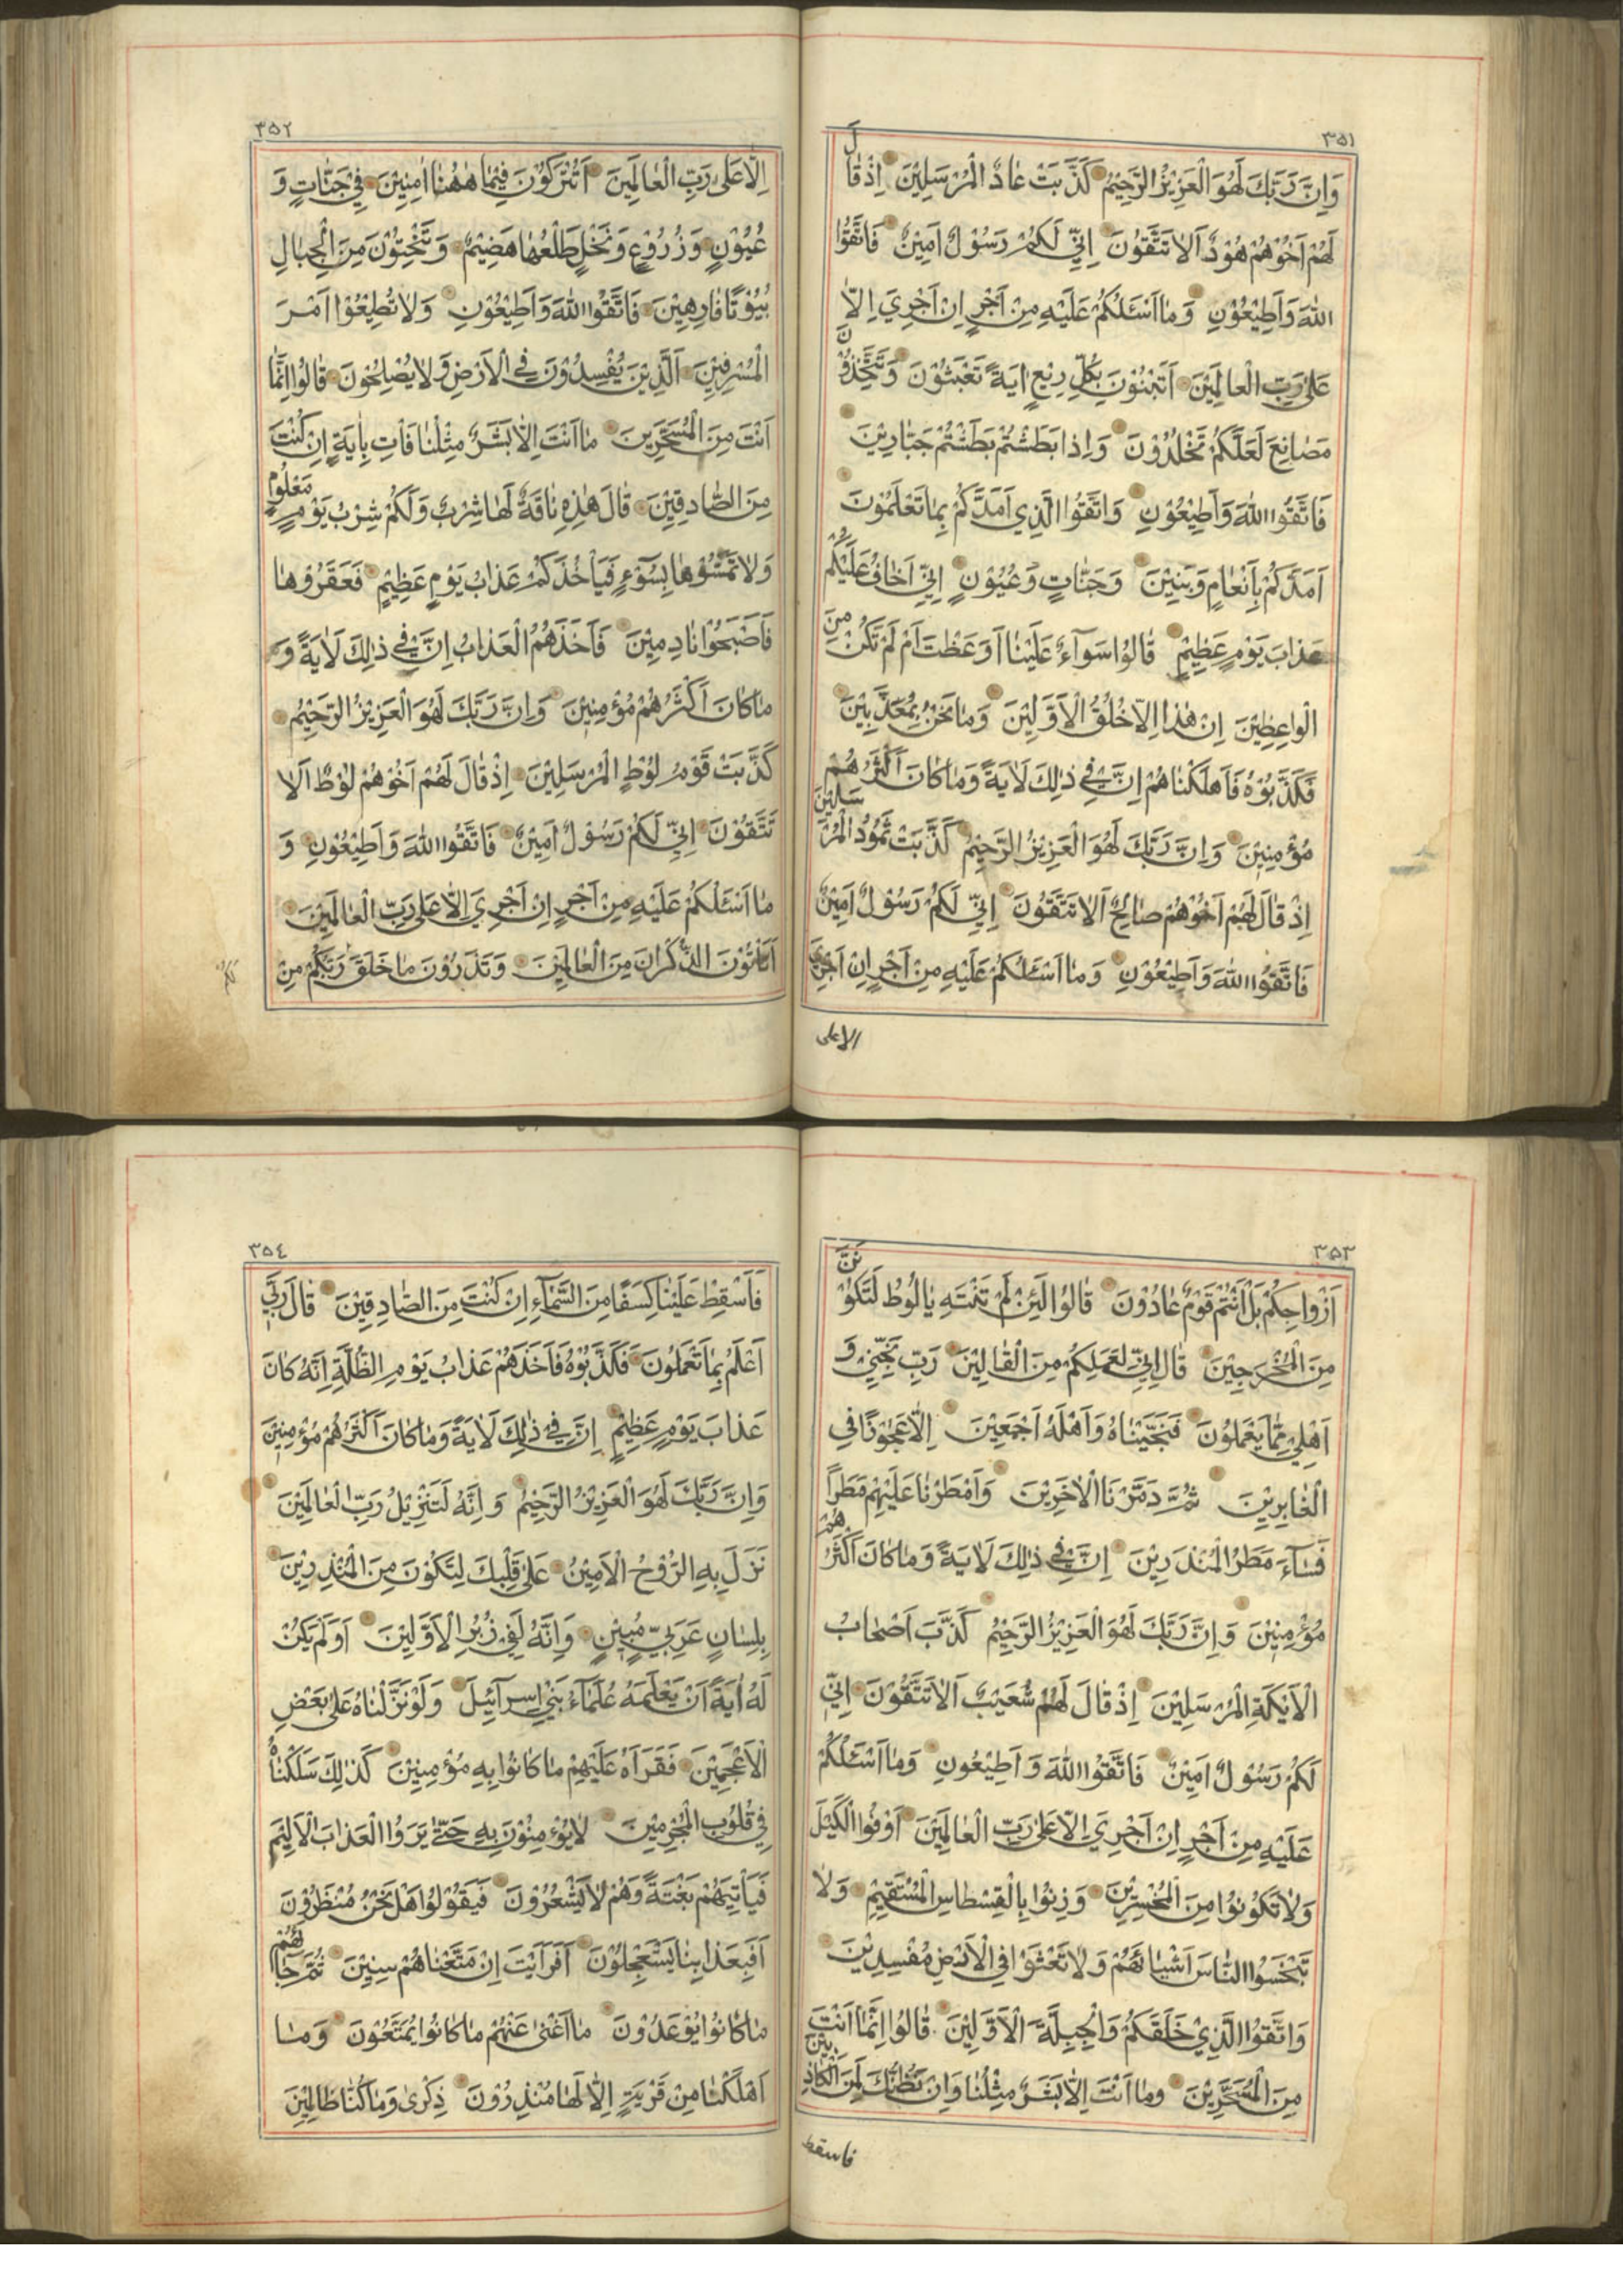 ٣٥١
وَاِنَّ رَبَّكَ لَهُوَ الْعَزِيْزُ الرَّحِيْمُ كَذَّبَتْ عَادٌ الْمُرْسَلِيْنَ اِذْ قَالَ
لَهُمْ اَخُوْهُمْ هُوْدٌ اَلَا تَتَّقُوْنَ اِنِّيْ لَكُمْ رَسُوْلٌ اَمِيْنٌ فَاتَّقُوا
اللّٰهَ وَاَطِيْعُوْنِ وَمَا اَسْئَلُكُمْ عَلَيْهِ مِنْ اَجْرٍ اِنْ اَجْرِيَ اِلَّا
عَلٰى رَبِّ الْعَالَمِيْنَ اَتَبْنُوْنَ بِكُلِّ رِيْعٍ اٰيَةً تَعْبَثُوْنَ وَتَتَّخِذُوْنَ
مَصَانِعَ لَعَلَّكُمْ تَخْلُدُوْنَ وَاِذَا بَطَشْتُمْ بَطَشْتُمْ جَبَّارِيْنَ
فَاتَّقُوا اللّٰهَ وَاَطِيْعُوْنِ وَاتَّقُوا الَّذِيْ اَمَدَّكُمْ بِمَا تَعْلَمُوْنَ
اَمَدَّكُمْ بِاَنْعَامٍ وَبَنِيْنَ وَجَنَّاتٍ وَعُيُوْنٍ اِنِّيْ اَخَافُ عَلَيْكُمْ
عَذَابَ يَوْمٍ عَظِيْمٍ قَالُوا سَوَآءٌ عَلَيْنَا اَوَعَظْتَ اَمْ لَمْ تَكُنْ مِنَ
الْوَاعِظِيْنَ اِنْ هٰذَا اِلَّا خُلُقُ الْاَوَّلِيْنَ وَمَا نَحْنُ بِمُعَذَّبِيْنَ
فَكَذَّبُوْهُ فَاَهْلَكْنَاهُمْ اِنَّ فِيْ ذٰلِكَ لَاٰيَةً وَمَا كَانَ اَكْثَرُهُمْ
مُؤْمِنِيْنَ وَاِنَّ رَبَّكَ لَهُوَ الْعَزِيْزُ الرَّحِيْمُ كَذَّبَتْ ثَمُوْدُ الْمُرْسَلِيْنَ
اِذْ قَالَ لَهُمْ اَخُوْهُمْ صَالِحٌ اَلَا تَتَّقُوْنَ اِنِّيْ لَكُمْ رَسُوْلٌ اَمِيْنٌ
فَاتَّقُوا اللّٰهَ وَاَطِيْعُوْنِ وَمَا اَسْئَلُكُمْ عَلَيْهِ مِنْ اَجْرٍ اِنْ اَجْرِيَ
الا على
٣٥٢
اِلَّا عَلٰى رَبِّ الْعَالَمِيْنَ اَتُتْرَكُوْنَ فِيْمَا هٰهُنَا اٰمِنِيْنَ فِيْ جَنَّاتٍ وَ
عُيُوْنٍ وَزُرُوْعٍ وَنَخْلٍ طَلْعُهَا هَضِيْمٌ وَتَنْحِتُوْنَ مِنَ الْجِبَالِ
بُيُوْتًا فَارِهِيْنَ فَاتَّقُوا اللّٰهَ وَاَطِيْعُوْنِ وَلَا تُطِيْعُوْا اَمْرَ
الْمُسْرِفِيْنَ اَلَّذِيْنَ يُفْسِدُوْنَ فِي الْاَرْضِ وَلَا يُصْلِحُوْنَ قَالُوا اِنَّمَا
اَنْتَ مِنَ الْمُسَحَّرِيْنَ مَا اَنْتَ اِلَّا بَشَرٌ مِثْلُنَا فَاْتِ بِاٰيَةٍ اِنْ كُنْتَ
مِنَ الصَّادِقِيْنَ قَالَ هٰذِهٖ نَاقَةٌ لَهَا شِرْبٌ وَلَكُمْ شِرْبُ يَوْمٍ مَعْلُوْمٍ
وَلَا تَمَسُّوْهَا بِسُوْٓءٍ فَيَاْخُذَكُمْ عَذَابُ يَوْمٍ عَظِيْمٍ فَعَقَرُوْهَا
فَاَصْبَحُوْا نَادِمِيْنَ فَاَخَذَهُمُ الْعَذَابُ اِنَّ فِيْ ذٰلِكَ لَاٰيَةً وَ
مَا كَانَ اَكْثَرُهُمْ مُؤْمِنِيْنَ وَاِنَّ رَبَّكَ لَهُوَ الْعَزِيْزُ الرَّحِيْمُ
كَذَّبَتْ قَوْمُ لُوْطٍ الْمُرْسَلِيْنَ اِذْ قَالَ لَهُمْ اَخُوْهُمْ لُوْطٌ اَلَا
تَتَّقُوْنَ اِنِّيْ لَكُمْ رَسُوْلٌ اَمِيْنٌ فَاتَّقُوا اللّٰهَ وَاَطِيْعُوْنِ وَ
مَا اَسْئَلُكُمْ عَلَيْهِ مِنْ اَجْرٍ اِنْ اَجْرِيَ اِلَّا عَلٰى رَبِّ الْعَالَمِيْنَ
اَتَاْتُوْنَ الذُّكْرَانَ مِنَ الْعَالَمِيْنَ وَتَذَرُوْنَ مَا خَلَقَ رَبُّكُمْ مِنْ
٣٥٣
اَزْوَاجِكُمْ بَلْ اَنْتُمْ قَوْمٌ عَادُوْنَ قَالُوا لَئِنْ لَمْ تَنْتَهِ يَا لُوْطُ لَتَكُوْنَنَّ
مِنَ الْمُخْرَجِيْنَ قَالَ اِنِّيْ لِعَمَلِكُمْ مِنَ الْقَالِيْنَ رَبِّ نَجِّنِيْ وَ
اَهْلِيْ مِمَّا يَعْمَلُوْنَ فَنَجَّيْنَاهُ وَاَهْلَهُ اَجْمَعِيْنَ اِلَّا عَجُوْزًا فِي
الْغَابِرِيْنَ ثُمَّ دَمَّرْنَا الْاٰخَرِيْنَ وَاَمْطَرْنَا عَلَيْهِمْ مَطَرًا
فَسَآءَ مَطَرُ الْمُنْذَرِيْنَ اِنَّ فِيْ ذٰلِكَ لَاٰيَةً وَمَا كَانَ اَكْثَرُهُمْ
مُؤْمِنِيْنَ وَاِنَّ رَبَّكَ لَهُوَ الْعَزِيْزُ الرَّحِيْمُ كَذَّبَ اَصْحَابُ
الْاَيْكَةِ الْمُرْسَلِيْنَ اِذْ قَالَ لَهُمْ شُعَيْبٌ اَلَا تَتَّقُوْنَ اِنِّيْ
لَكُمْ رَسُوْلٌ اَمِيْنٌ فَاتَّقُوا اللّٰهَ وَاَطِيْعُوْنِ وَمَا اَسْئَلُكُمْ
عَلَيْهِ مِنْ اَجْرٍ اِنْ اَجْرِيَ اِلَّا عَلٰى رَبِّ الْعَالَمِيْنَ اَوْفُوا الْكَيْلَ
وَلَا تَكُوْنُوْا مِنَ الْمُخْسِرِيْنَ وَزِنُوْا بِالْقِسْطَاسِ الْمُسْتَقِيْمِ وَلَا
تَبْخَسُوا النَّاسَ اَشْيَائَهُمْ وَلَا تَعْثَوْا فِي الْاَرْضِ مُفْسِدِيْنَ
وَاتَّقُوْا الَّذِيْ خَلَقَكُمْ وَالْجِبِلَّةَ الْاَوَّلِيْنَ قَالُوْا اِنَّمَا اَنْتَ
مِنَ الْمُسَحَّرِيْنَ وَمَا اَنْتَ اِلَّا بَشَرٌ مِثْلُنَا وَاِنْ نَظُنُّكَ لَمِنَ الْكَاذِبِيْنَ
فاسقط
٣٥٤
فَاَسْقِطْ عَلَيْنَا كِسَفًا مِنَ السَّمَآءِ اِنْ كُنْتَ مِنَ الصَّادِقِيْنَ قَالَ رَبِّيْ
اَعْلَمُ بِمَا تَعْمَلُوْنَ فَكَذَّبُوْهُ فَاَخَذَهُمْ عَذَابُ يَوْمِ الظُّلَّةِ اِنَّهُ كَانَ
عَذَابَ يَوْمٍ عَظِيْمٍ اِنَّ فِيْ ذٰلِكَ لَاٰيَةً وَمَا كَانَ اَكْثَرُهُمْ مُؤْمِنِيْنَ
وَاِنَّ رَبَّكَ لَهُوَ الْعَزِيْزُ الرَّحِيْمُ وَاِنَّهُ لَتَنْزِيْلُ رَبِّ الْعَالَمِيْنَ
نَزَلَ بِهِ الرُّوْحُ الْاَمِيْنُ عَلٰى قَلْبِكَ لِتَكُوْنَ مِنَ الْمُنْذِرِيْنَ
بِلِسَانٍ عَرَبِيٍّ مُبِيْنٍ وَاِنَّهُ لَفِيْ زُبُرِ الْاَوَّلِيْنَ اَوَلَمْ يَكُنْ
لَهُ اٰيَةً اَنْ يَعْلَمَهُ عُلَمَآءُ بَنِيْ اِسْرَآئِيْلَ وَلَوْ نَزَّلْنَاهُ عَلٰى بَعْضِ
الْاَعْجَمِيْنَ فَقَرَاَهُ عَلَيْهِمْ مَا كَانُوْا بِهِ مُؤْمِنِيْنَ كَذٰلِكَ سَلَكْنَاهُ
فِيْ قُلُوْبِ الْمُجْرِمِيْنَ لَا يُؤْمِنُوْنَ بِهِ حَتّٰى يَرَوُا الْعَذَابَ الْاَلِيْمَ
فَيَاْتِيَهُمْ بَغْتَةً وَهُمْ لَا يَشْعُرُوْنَ فَيَقُوْلُوْا هَلْ نَحْنُ مُنْظَرُوْنَ
اَفَبِعَذَابِنَا يَسْتَعْجِلُوْنَ اَفَرَاَيْتَ اِنْ مَتَّعْنَاهُمْ سِنِيْنَ ثُمَّ جَآءَهُمْ
مَا كَانُوْا يُوْعَدُوْنَ مَا اَغْنٰى عَنْهُمْ مَا كَانُوْا يُمَتَّعُوْنَ وَمَا
اَهْلَكْنَا مِنْ قَرْيَةٍ اِلَّا لَهَا مُنْذِرُوْنَ ذِكْرٰى وَمَا كُنَّا ظَالِمِيْنَ